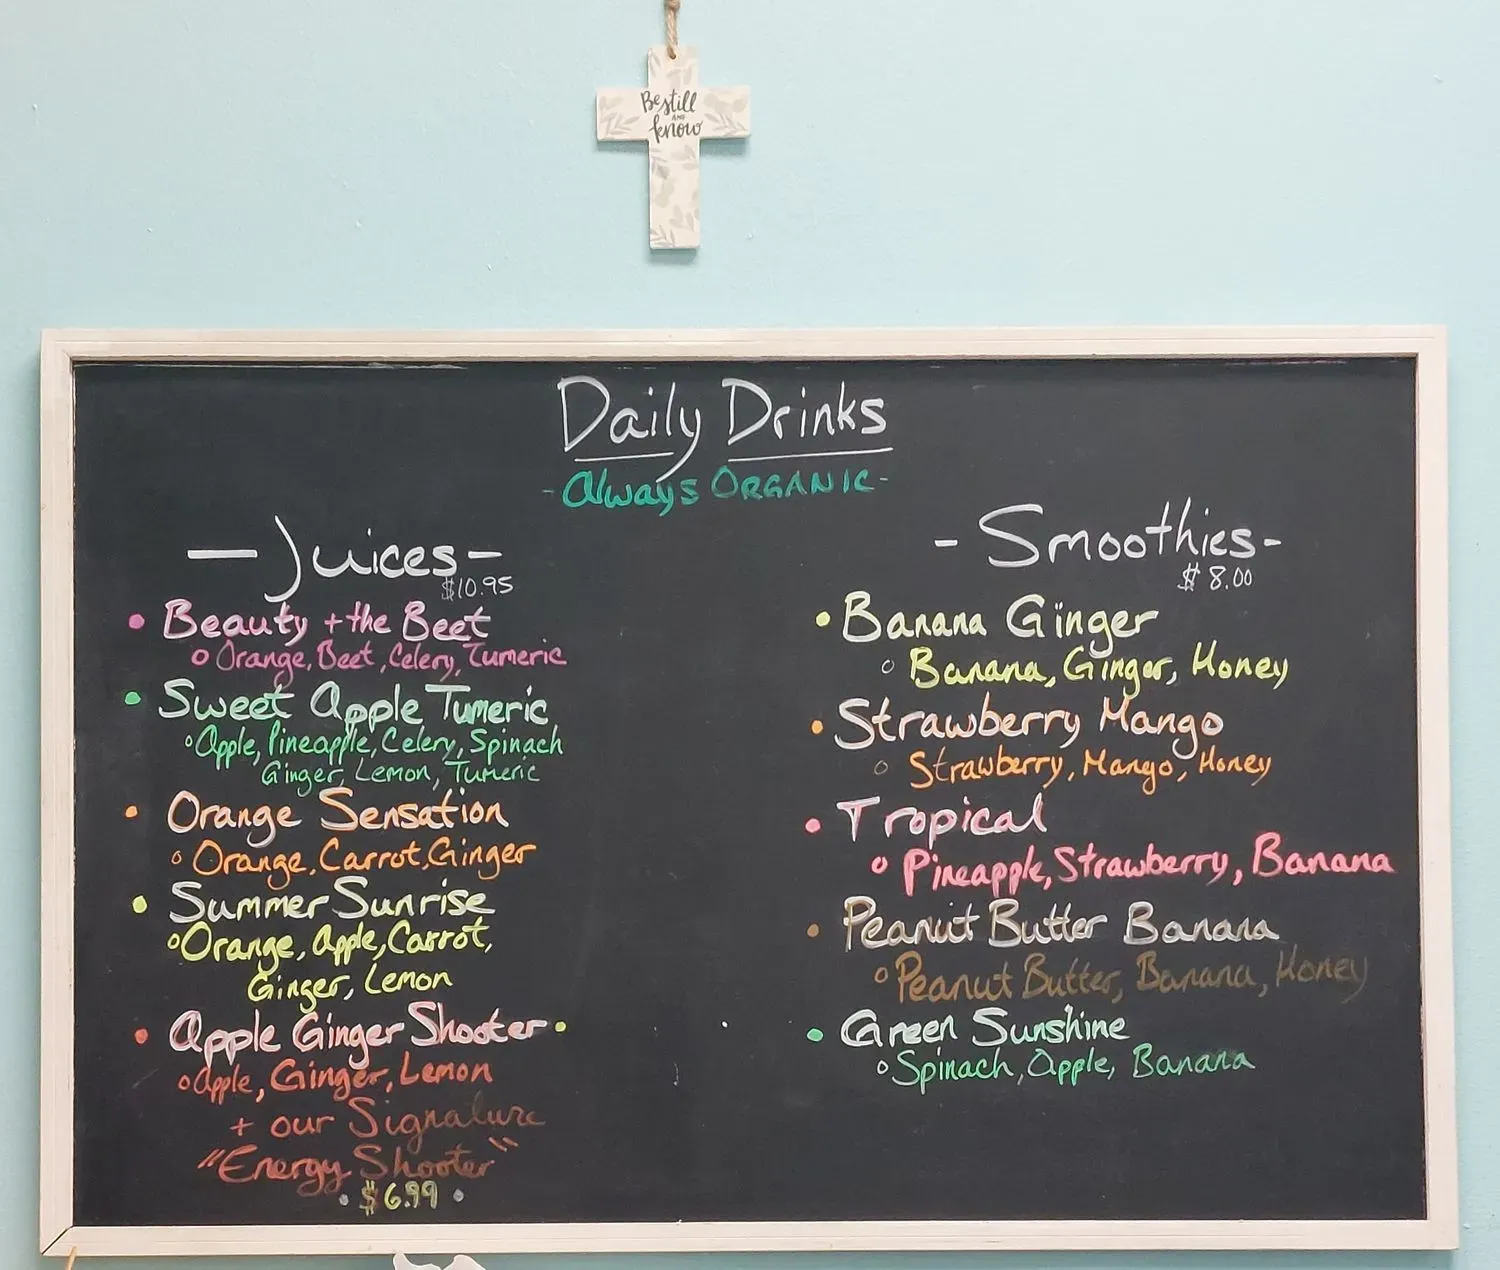 Be still
AND
know
Daily Drinks
- Always ORGANIC -
- Juices -
$10.95
• Beauty + the Beet
o Orange, Beet, Celery, Tumeric
• Sweet Apple Tumeric
o Apple, Pineapple, Celery, Spinach
Ginger, Lemon, Tumeric
• Orange Sensation
o Orange, Carrot, Ginger
• Summer Sunrise
o Orange, Apple, Carrot,
Ginger, Lemon
• Apple Ginger Shooter •
o Apple, Ginger, Lemon
+ our Signature
"Energy Shooter"
• $6.99 •
- Smoothies -
$8.00
• Banana Ginger
o Banana, Ginger, Honey
• Strawberry Mango
o Strawberry, Mango, Honey
• Tropical
o Pineapple, Strawberry, Banana
• Peanut Butter Banana
o Peanut Butter, Banana, Honey
• Green Sunshine
o Spinach, Apple, Banana